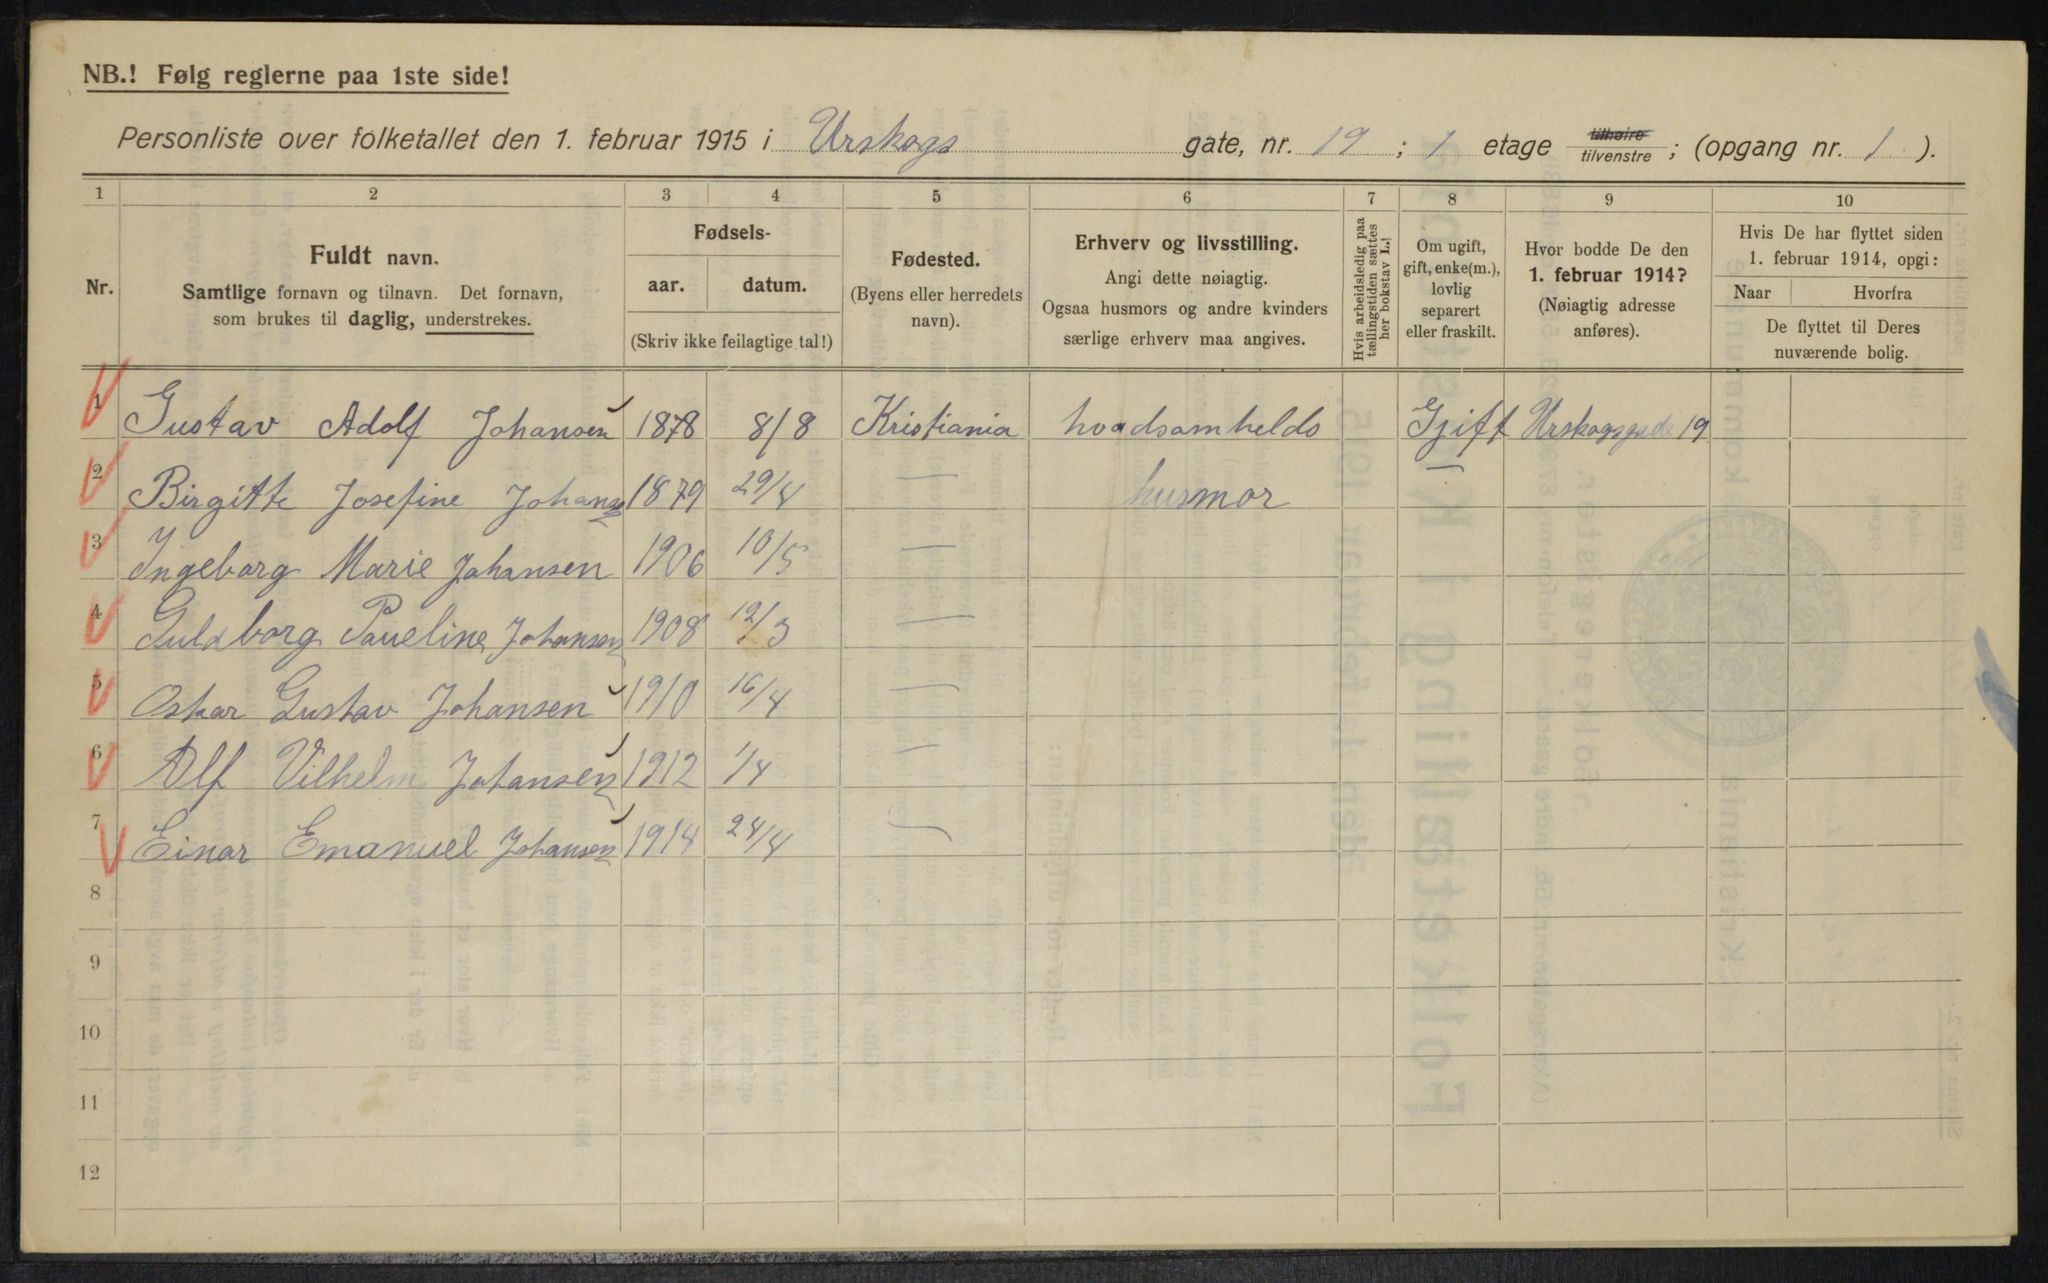 NB.! Følg reglerne paa 1ste side!
Personliste over folketallet den 1. februar 1915 i Urskogs gate, nr. 19 ; 1 etage tilhøire tilvenstre ; (opgang nr. 1 ).
1 2 3 4 5 6 7 8 9 10
Nr.
Fuldt navn.
Samtlige fornavn og tilnavn. Det fornavn,
som brukes til daglig, understrekes.
Fødsels-
aar. datum.
(Skriv ikke feilagtige tal!)
Fødested.
(Byens eller herredets
navn).
Erhverv og livsstilling.
Angi dette nøiagtig.
Ogsaa husmors og andre kvinders
særlige erhverv maa angives.
Hvis arbeidsledig paa
tællingstiden sættes
her bokstav L.
Om ugift,
gift, enke(m.),
lovlig
separert
eller fraskilt.
Hvor bodde De den
1. februar 1914?
(Nøiagtig adresse
anføres).
Hvis De har flyttet siden
1. februar 1914, opgi:
Naar Hvorfra
De flyttet til Deres
nuværende bolig.
1 Gustav Adolf Johansen 1878 8/8 Kristiania Gift Urskogsgade 19
2 Birgitte Josefine Johansen 1879 29/4 — husmor —
3 Ingeborg Marie Johansen 1906 10/5 —
4 Guldborg Paueline Johansen 1908 12/3 —
5 Oskar Gustav Johansen 1910 16/4 —
6 Alf Vilhelm Johansen 1912 1/4 —
7 Einar Emanuel Johansen 1914 24/4 —
8
9
10
11
12